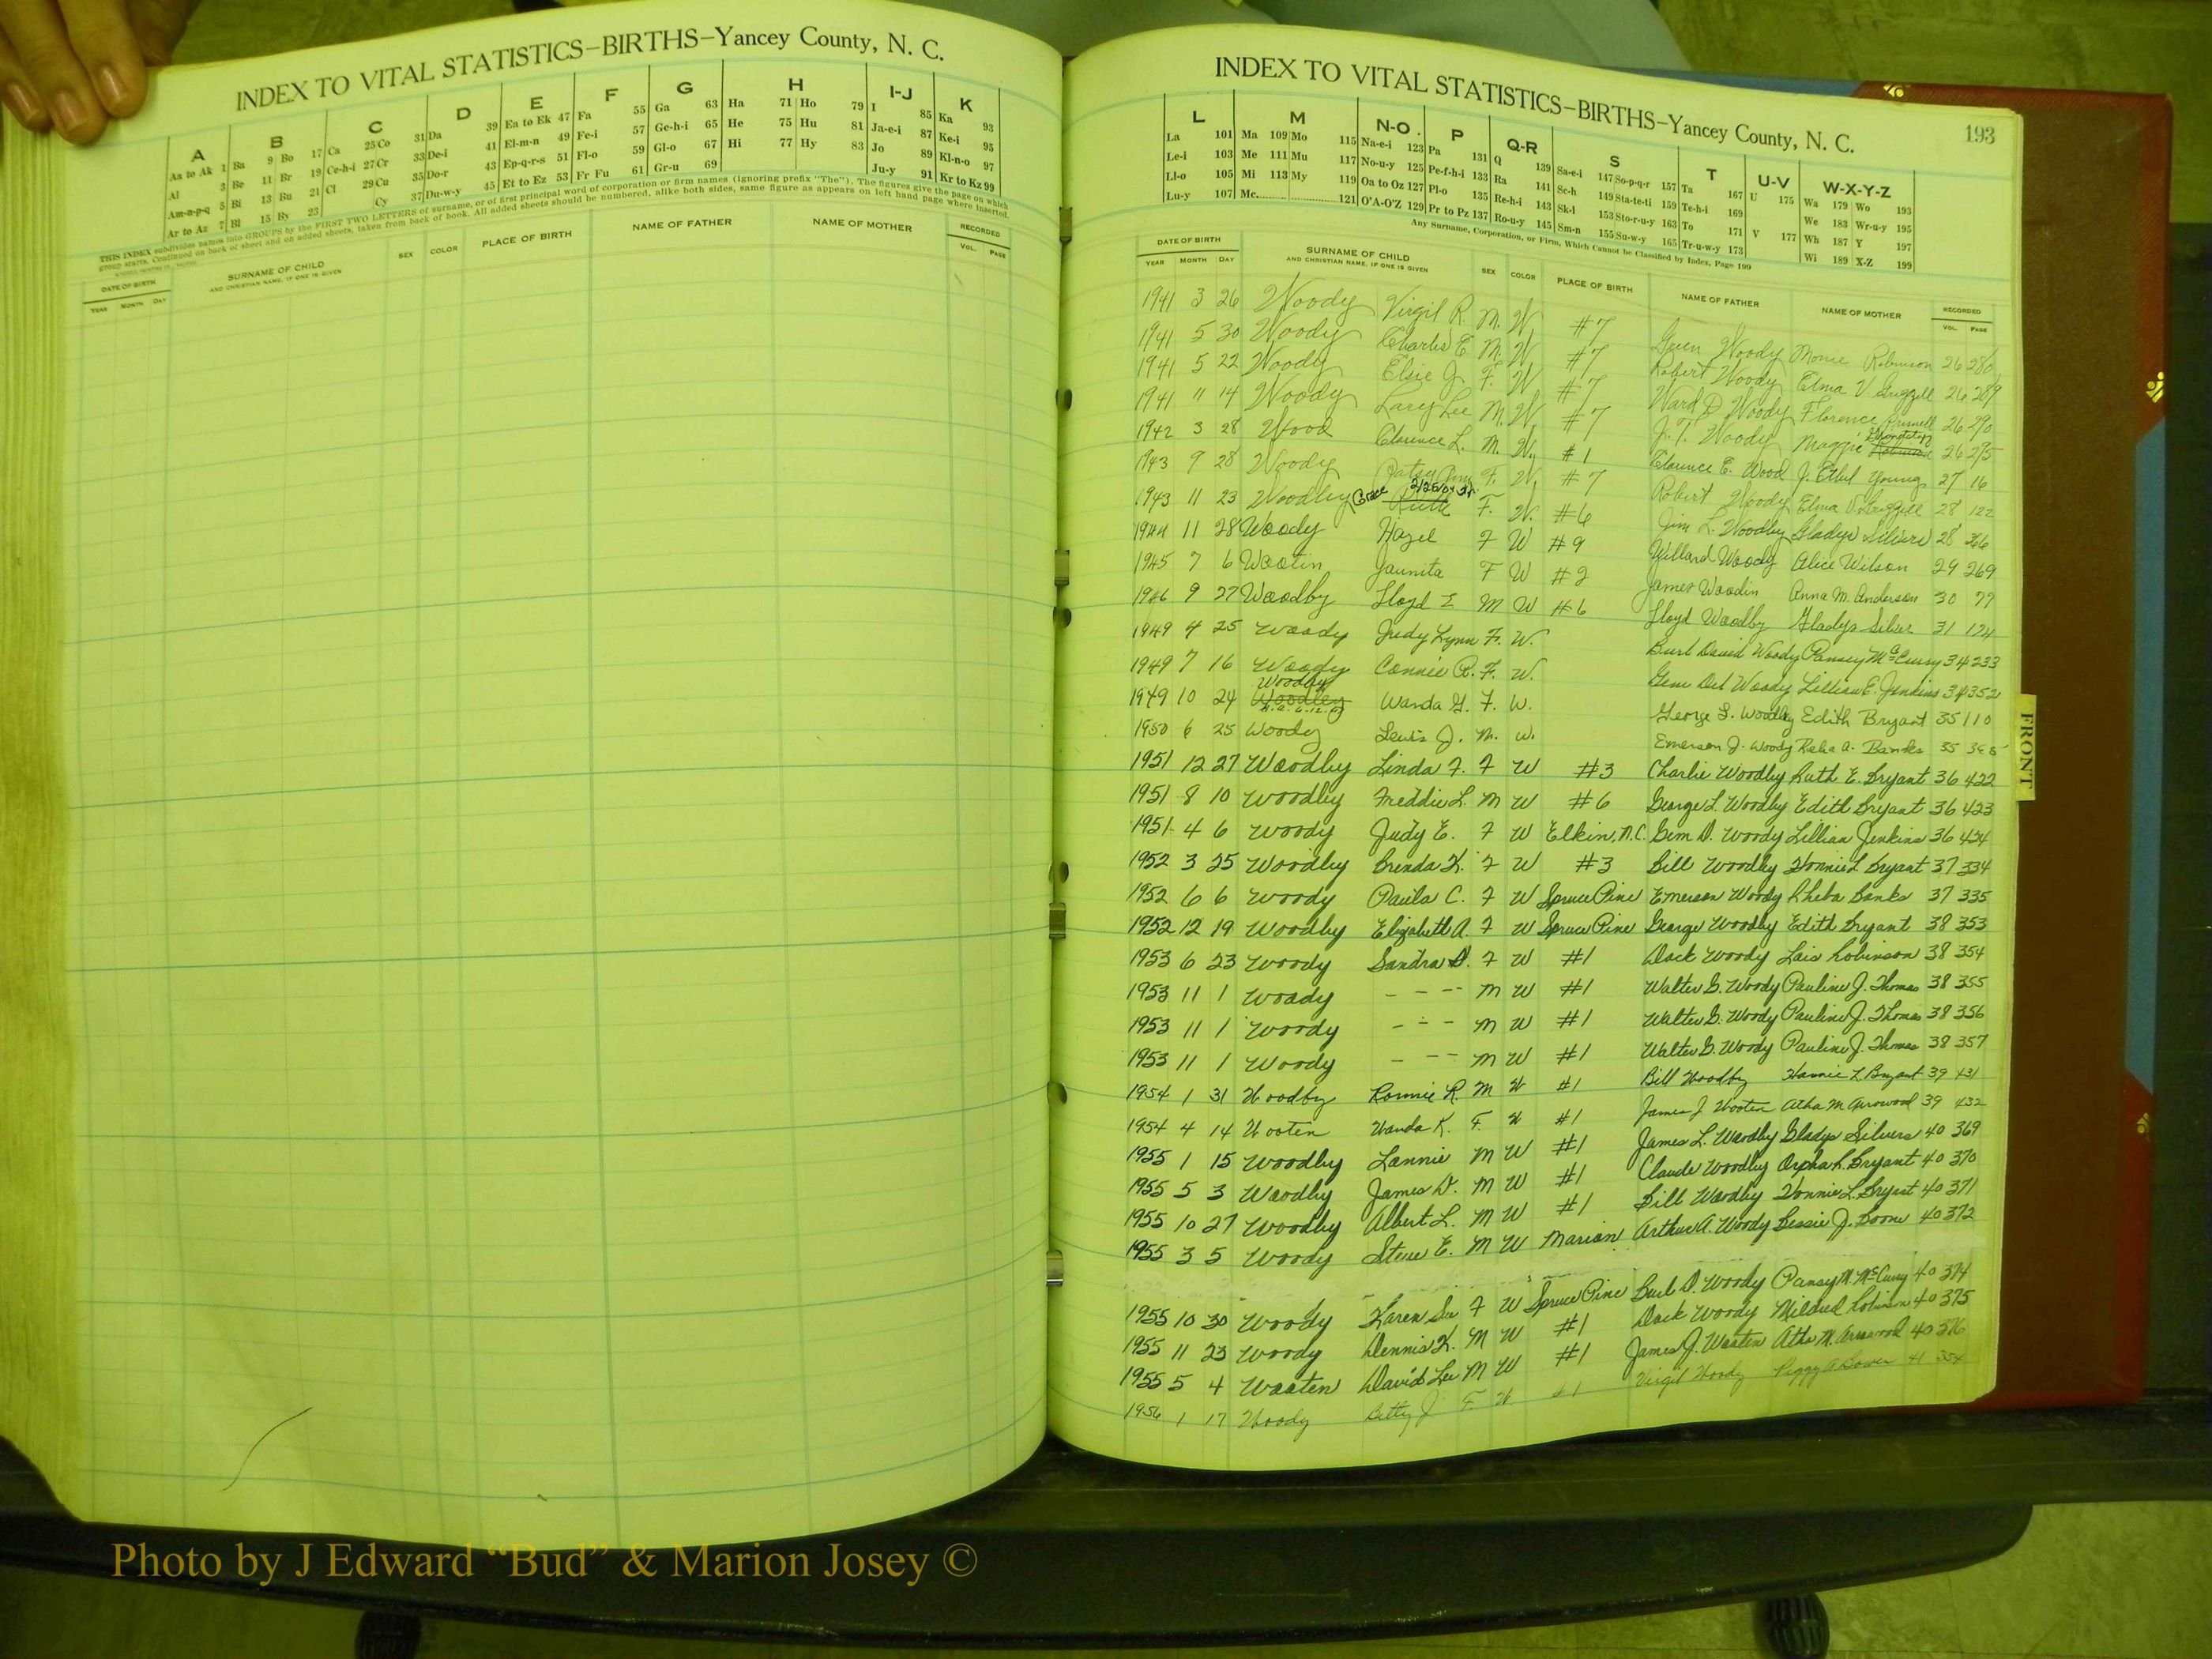 INDEX TO VITAL STATISTICS—BIRTHS—Yancey County, N. C.
A B C D E F G H I-J K
Aa to Ak 1 Ba 9 Bo 17 Ca 25 Co 31 Da 39 Ea to Ek 47 Fa 55 Ga 63 Ha 71 Ho 79 I 85 Ka 93
Al 3 Be 11 Br 19 Ce-h-i 27 Cr 33 De-i 41 El-m-n 49 Fe-i 57 Ge-h-i 65 He 75 Hu 81 Ja-e-i 87 Ke-i 95
Am-n-p-q 5 Bi 13 Bu 21 Cl 29 Cu 35 Do-r 43 Ep-q-r-s 51 Fl-o 59 Gl-o 67 Hi 77 Hy 83 Jo 89 Kl-n-o 97
Ar to Az 7 Bl 15 By 23 Cy 37 Du-w-y 45 Et to Ez 53 Fr Fu 61 Gr-u 69 Ju-y 91 Kr to Kz 99
THIS INDEX subdivides names into GROUPS by the FIRST TWO LETTERS of surname, or of first principal word of corporation or firm names (ignoring prefix "The"). The figures give the page on which
group starts. Continued on back of sheet and on added sheets, taken from back of book. All added sheets should be numbered, alike both sides, same figure as appears on left hand page where inserted.
DATE OF BIRTH SURNAME OF CHILD SEX COLOR PLACE OF BIRTH NAME OF FATHER NAME OF MOTHER RECORDED
YEAR MONTH DAY AND CHRISTIAN NAME, IF ONE IS GIVEN VOL. PAGE
INDEX TO VITAL STATISTICS—BIRTHS—Yancey County, N. C. 193
L M N-O P Q-R S T U-V W-X-Y-Z
La 101 Ma 109 Mo 115 Na-e-i 123 Pa 131 Q 139 Sa-e-i 147 So-p-q-r 157 Ta 167 U 175 Wa 179 Wo 193
Le-i 103 Me 111 Mu 117 No-u-y 125 Pe-f-h-i 133 Ra 141 Sc-h 149 Sta-te-ti 159 Te-h-i 169 We 183 Wr-u-y 195
Ll-o 105 Mi 113 My 119 Oa to Oz 127 Pl-o 135 Re-h-i 143 Sk-l 153 Sto-r-u-y 163 To 171 V 177 Wh 187 Y 197
Lu-y 107 Mc 121 O'A-O'Z 129 Pr to Pz 137 Ro-u-y 145 Sm-n 155 Su-w-y 165 Tr-u-w-y 173 Wi 189 X-Z 199
Any Surname, Corporation, or Firm, Which Cannot be Classified by Index, Page 199
DATE OF BIRTH SURNAME OF CHILD SEX COLOR PLACE OF BIRTH NAME OF FATHER NAME OF MOTHER RECORDED
YEAR MONTH DAY AND CHRISTIAN NAME, IF ONE IS GIVEN VOL. PAGE
1941 3 26 Woody Virgil R. M. W. #7 Woody Robinson 26
1941 5 30 Woody Charles E. M. W. #7 Robert Woody Elma V. 26
1941 5 22 Woody Elsie J. F. W #7 Ward D Woody Florence 26 290
1941 11 14 Woody Lary Lee M. W. #7 J. T. Woody Maggie 26
1942 3 28 Wood Clarence L. M. W. #1 Clarence E. Wood J. Ethel Young 27 16
1943 9 28 Woody Patsy Ann F. W. #7 Robert Woody Elma V. 28 122
1943 11 23 Woodby Grace Ruth F. W. #6 Jim L. Woodby Gladys Silvers 28
1944 11 28 Woody Hazel F W #9 Willard Woody Alice Wilson 29 269
1945 7 6 Wootin Jaunita F W #2 James Woodin Anna M. Anderson 30 77
1946 9 27 Woodby Lloyd E M W #6 Lloyd Woodby Gladys Silver 31 124
1949 4 25 Woody Judy Lynn F. W. Burl David Woody Pansey McCurry 34 233
1949 7 16 Woody Connie R. F. W. Gene Woody Lillian E. Jenkins 34 352
1949 10 24 Woodby Wanda G. F. W. George L. Woodby Edith Bryant 35 110
1950 6 25 Woody Lewis J. M. W. Emerson J. Woody A. Banks 35
1951 12 27 Woodby Linda F. F W #3 Charlie Woodby Ruth E. Bryant 36 422
1951 8 10 Woodby Freddie L. M W #6 George L. Woodby Edith Bryant 36 423
1951 4 6 Woody Judy E. F W Elkin, N.C. Gem D. Woody Lillian Jenkins 36 424
1952 3 25 Woodby Brenda K. F W #3 Bill Woodby Bryant 37 334
1952 6 6 Woody Paula C. F W Spruce Pine Emerson Woody Rheba Banks 37 335
1952 12 19 Woodby Elizabeth A. F W Spruce Pine George Woodby Edith Bryant 38 353
1953 6 23 Woody Sandra D. F W #1 Dock Woody Lois Robinson 38 354
1953 11 1 Woody - - - M W #1 Walter G. Woody Pauline J. Thomas 38 355
1953 11 1 Woody - - - M W #1 Walter G. Woody Pauline J. Thomas 38 356
1953 11 1 Woody - - - M W #1 Walter G. Woody Pauline J. Thomas 38 357
1954 1 31 Woodby Ronnie R. M W #1 Bill Woodby L Bryant 39 431
1954 4 14 Wooten Wanda K. F. W #1 James J Wooten Atha M Arrowood 39 432
1955 1 15 Woodby Lannie M W #1 James L. Woodby Gladys Silvers 40 369
1955 5 3 Woodby James D. M W #1 Claude Woodby Orpha L. Bryant 40 370
1955 10 27 Woodby Albert L. M W #1 Bill Woodby L. Bryant 40 371
1955 3 5 Woody Steve E. M W Marion Arthur A. Woody Bessie J. Boone 40 372
1955 10 30 Woody Karen Sue F W Spruce Pine Burl D. Woody Pansy M. McCurry 40 374
1955 11 23 Woody Dennis K. M W #1 Dock Woody Mildred Robinson 40 375
1955 5 4 Wooten David Lee M W #1 James J. Wooten Atha M. Arrowood 40 376
1956 1 17 Woody Betty J F. W Virgil Woody Peggy A 41 354
FRONT
Photo by J Edward “Bud” & Marion Josey ©